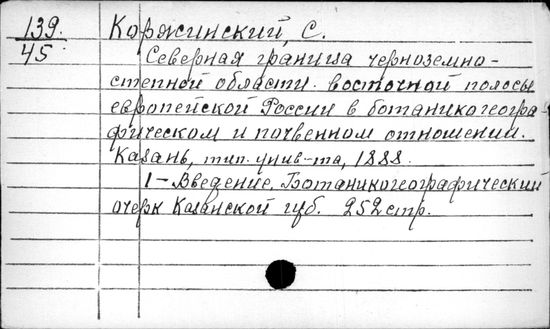 139. Коржинский, С.
45
Северная граница черноземно-
степной области восточной полосы
европейской России в ботаникогеогра-
фическом и почвенном отношении.
Казань, тип. унив-та, 1888.
1 - Введение. Ботаникогеографический
очерк Казанской губ. 252 стр.